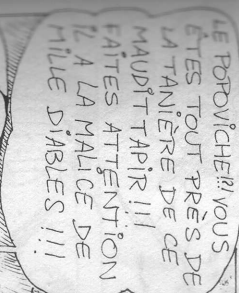 LE POPOVICHE!?! VOUS
ÊTES TOUT PRÈS DE
LA TANIÈRE DE CE
MAUDIT TAPIR!!!
FAITES ATTENTION
IL A LA MALICE DE
MILLE DIABLES!!!